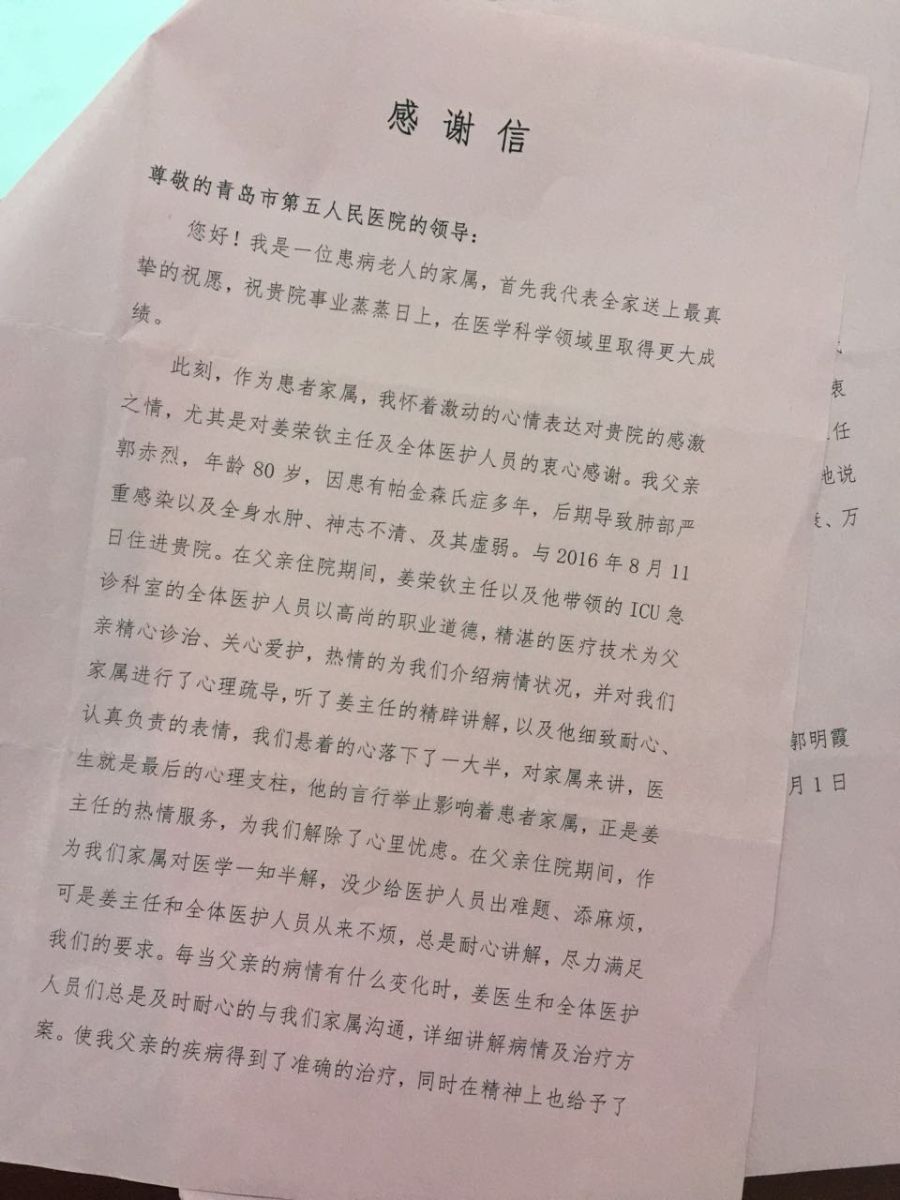 感谢信
尊敬的青岛市第五人民医院的领导：
您好！我是一位患病老人的家属，首先我代表全家送上最真
挚的祝愿，祝贵院事业蒸蒸日上，在医学科学领域里取得更大成
绩。
此刻，作为患者家属，我怀着激动的心情表达对贵院的感激
之情，尤其是对姜荣钦主任及全体医护人员的衷心感谢。我父亲
郭赤烈，年龄80岁，因患有帕金森氏症多年，后期导致肺部严
重感染以及全身水肿、神志不清、及其虚弱。与2016年8月11
日住进贵院。在父亲住院期间，姜荣钦主任以及他带领的ICU急
诊科室的全体医护人员以高尚的职业道德，精湛的医疗技术为父
亲精心诊治、关心爱护，热情的为我们介绍病情状况，并对我们
家属进行了心理疏导，听了姜主任的精辟讲解，以及他细致耐心、
认真负责的表情，我们悬着的心落下了一大半，对家属来讲，医
生就是最后的心理支柱，他的言行举止影响着患者家属，正是姜
主任的热情服务，为我们解除了心里忧虑。在父亲住院期间，作
为我们家属对医学一知半解，没少给医护人员出难题、添麻烦，
可是姜主任和全体医护人员从来不烦，总是耐心讲解，尽力满足
我们的要求。每当父亲的病情有什么变化时，姜医生和全体医护
人员们总是及时耐心的与我们家属沟通，详细讲解病情及治疗方
案。使我父亲的疾病得到了准确的治疗，同时在精神上也给予了
衷
任
他说
、万
郭明霞
月1日